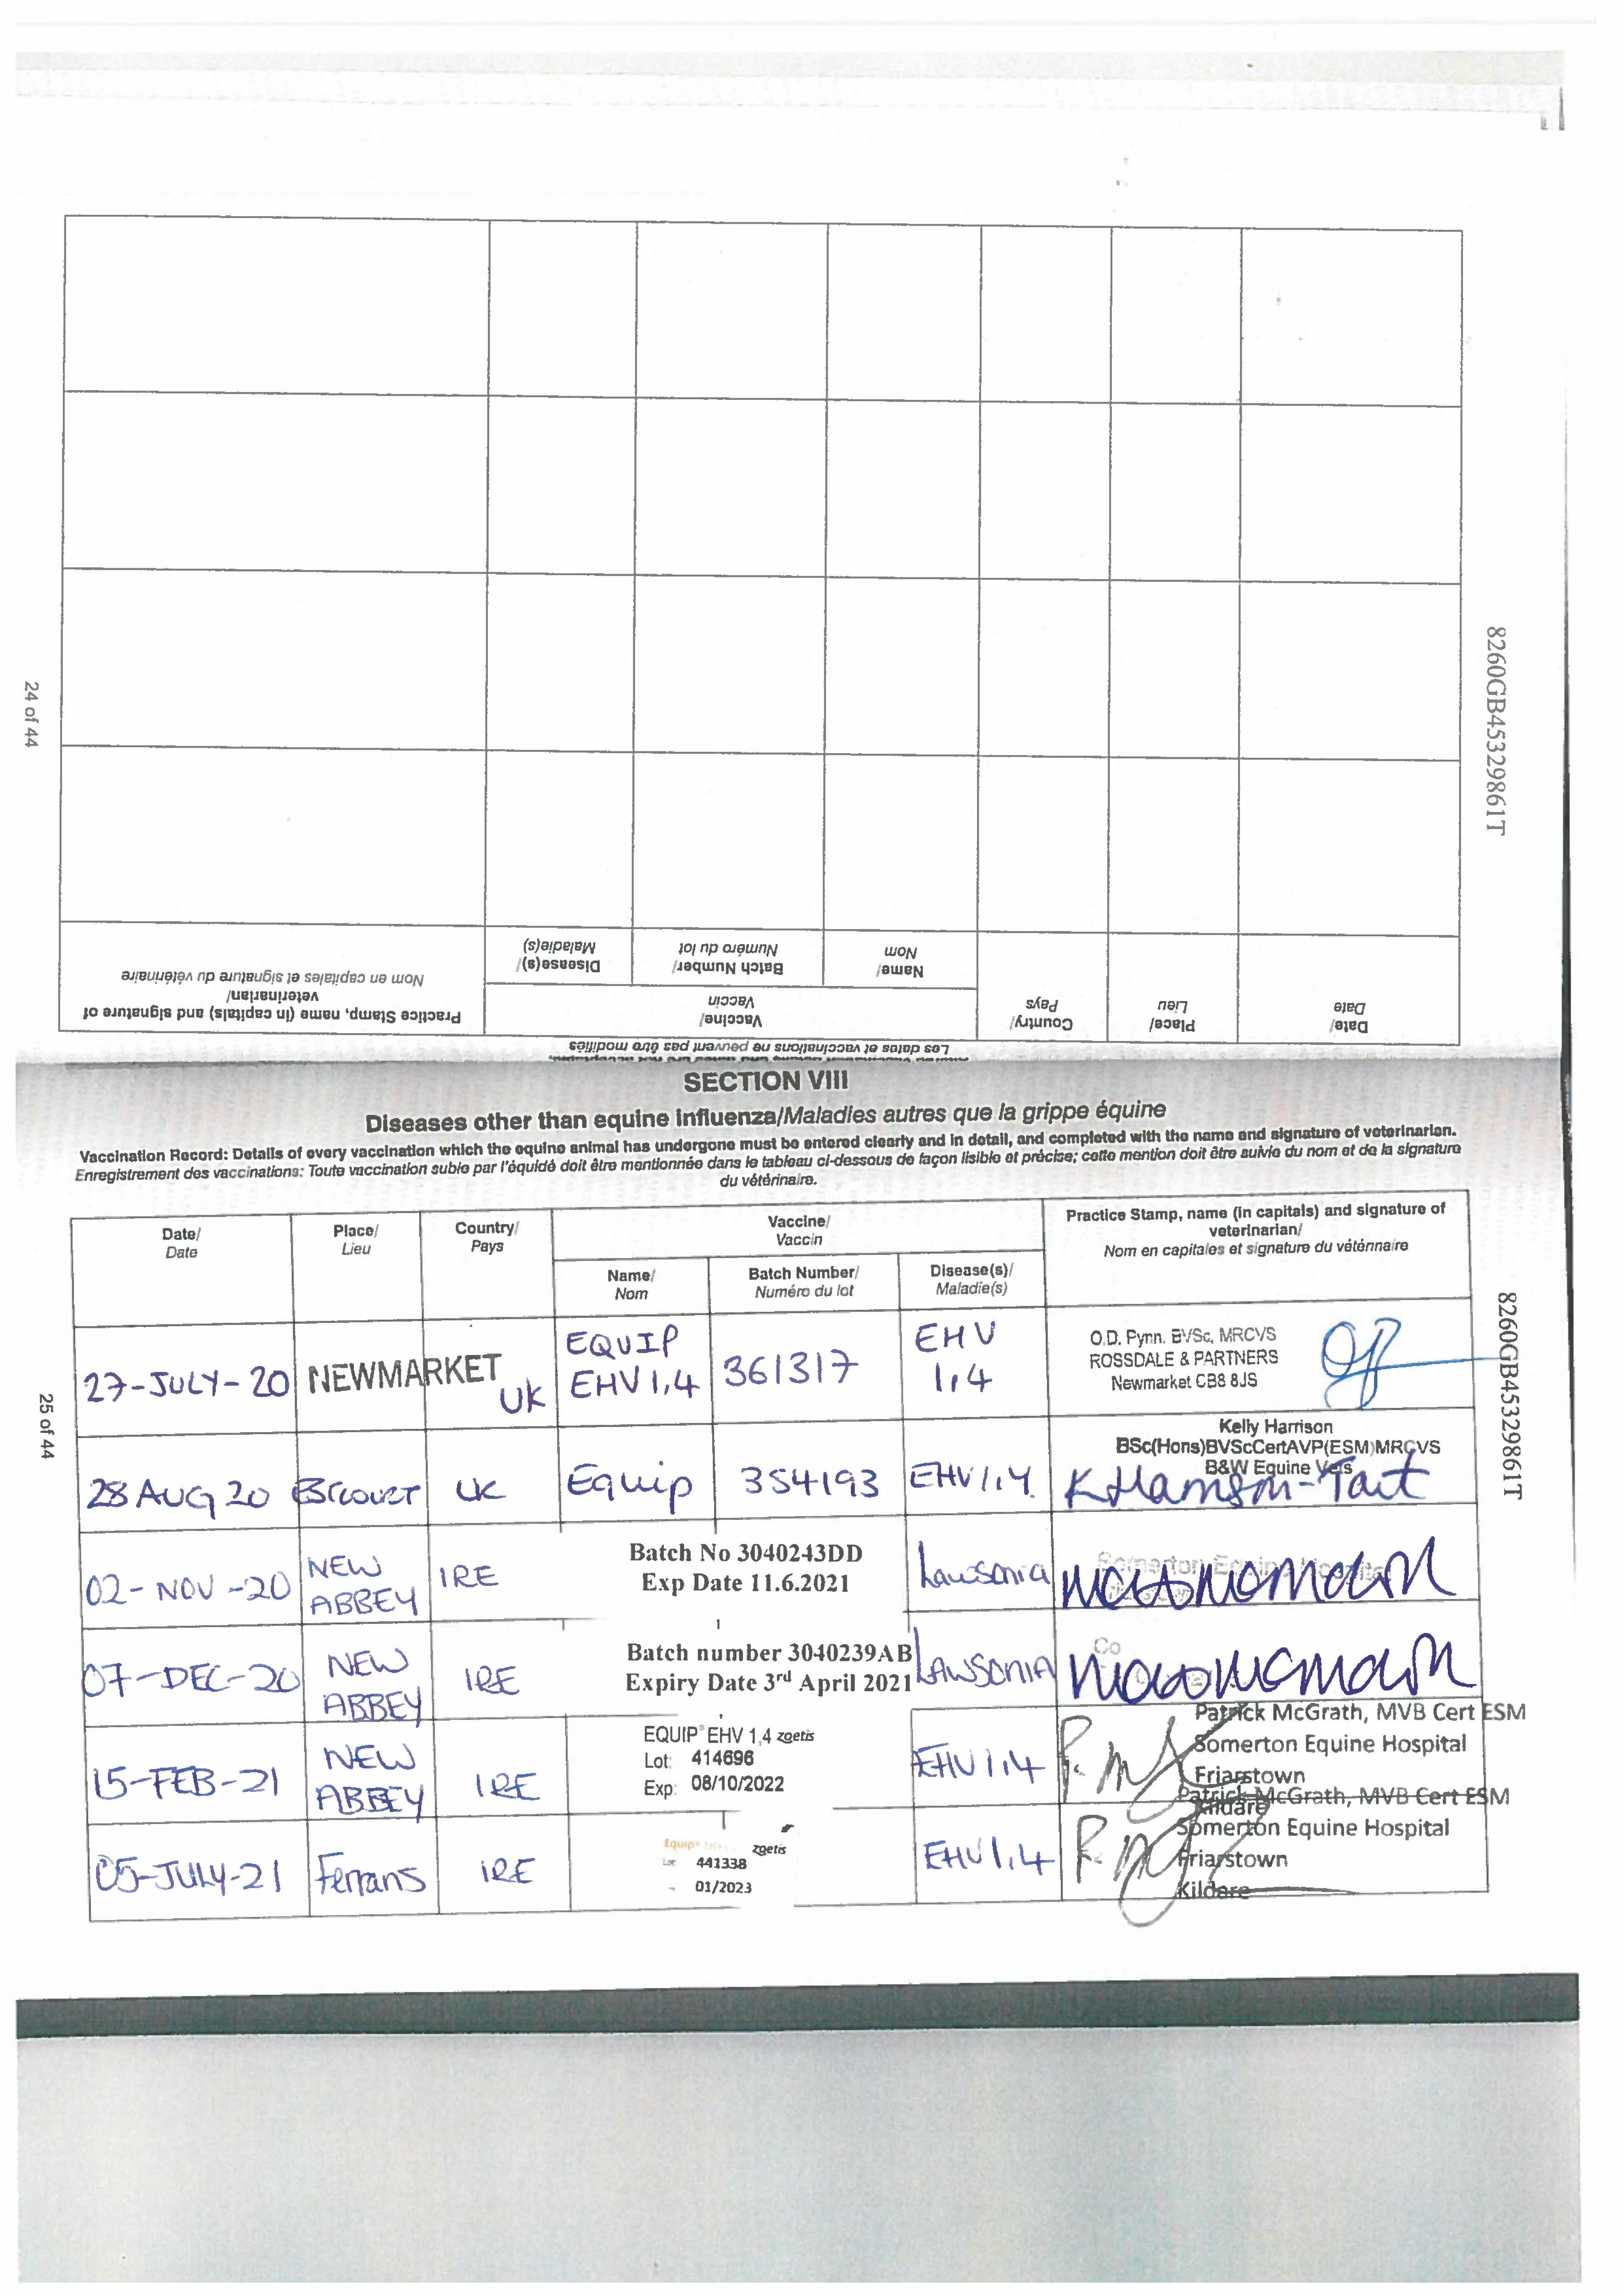 8260GB45329861T
24 of 44
Date/
Date
Place/
Lieu
Country/
Pays
Vaccine/
Vaccin
Name/
Nom
Batch Number/
Numéro du lot
Disease(s)/
Maladie(s)
Practice Stamp, name (in capitals) and signature of
veterinarian/
Nom en capitales et signature du vétérinaire
Les dates et vaccinations ne peuvent pas être modifiées
SECTION VIII
Diseases other than equine influenza/Maladies autres que la grippe équine
Vaccination Record: Details of every vaccination which the equine animal has undergone must be entered clearly and in detail, and completed with the name and signature of veterinarian.
Enregistrement des vaccinations: Toute vaccination subie par l'équidé doit être mentionnée dans le tableau ci-dessous de façon lisible et précise; cette mention doit être suivie du nom et de la signature
du vétérinaire.
Date/
Date
Place/
Lieu
Country/
Pays
Vaccine/
Vaccin
Name/
Nom
Batch Number/
Numéro du lot
Disease(s)/
Maladie(s)
Practice Stamp, name (in capitals) and signature of
veterinarian/
Nom en capitales et signature du vétérinaire
27-JULY-20 NEWMARKET UK
EQUIP
EHV 1,4
361317
EHV
1,4
O.D. Pynn. BVSc, MRCVS
ROSSDALE & PARTNERS
Newmarket CB8 8JS
28 AUG 20 UK Equip 354193 EHV 1,4
Kelly Harrison
BSc(Hons)BVScCertAVP(ESM)MRCVS
B&W Equine Vets
K Harrison-Tait
02-NOV-20
NEW
ABBEY
IRE
Batch No 3040243DD
Exp Date 11.6.2021
Lawsonia
Somerton Equine Hospital
07-DEC-20
NEW
ABBEY
IRE
Batch number 3040239AB
Expiry Date 3rd April 2021
LAWSONIA
Co
15-FEB-21
NEW
ABBEY
IRE
EQUIP® EHV 1,4 zoetis
Lot: 414696
Exp: 08/10/2022
EHV 1,4
Patrick McGrath, MVB Cert ESM
Somerton Equine Hospital
Friarstown
Kildare
05-JULY-21 Ferrans IRE
Equip zoetis
Lot 441338
01/2023
EHV 1,4
Patrick McGrath, MVB Cert ESM
Somerton Equine Hospital
Friarstown
Kildare
25 of 44
8260GB45329861T